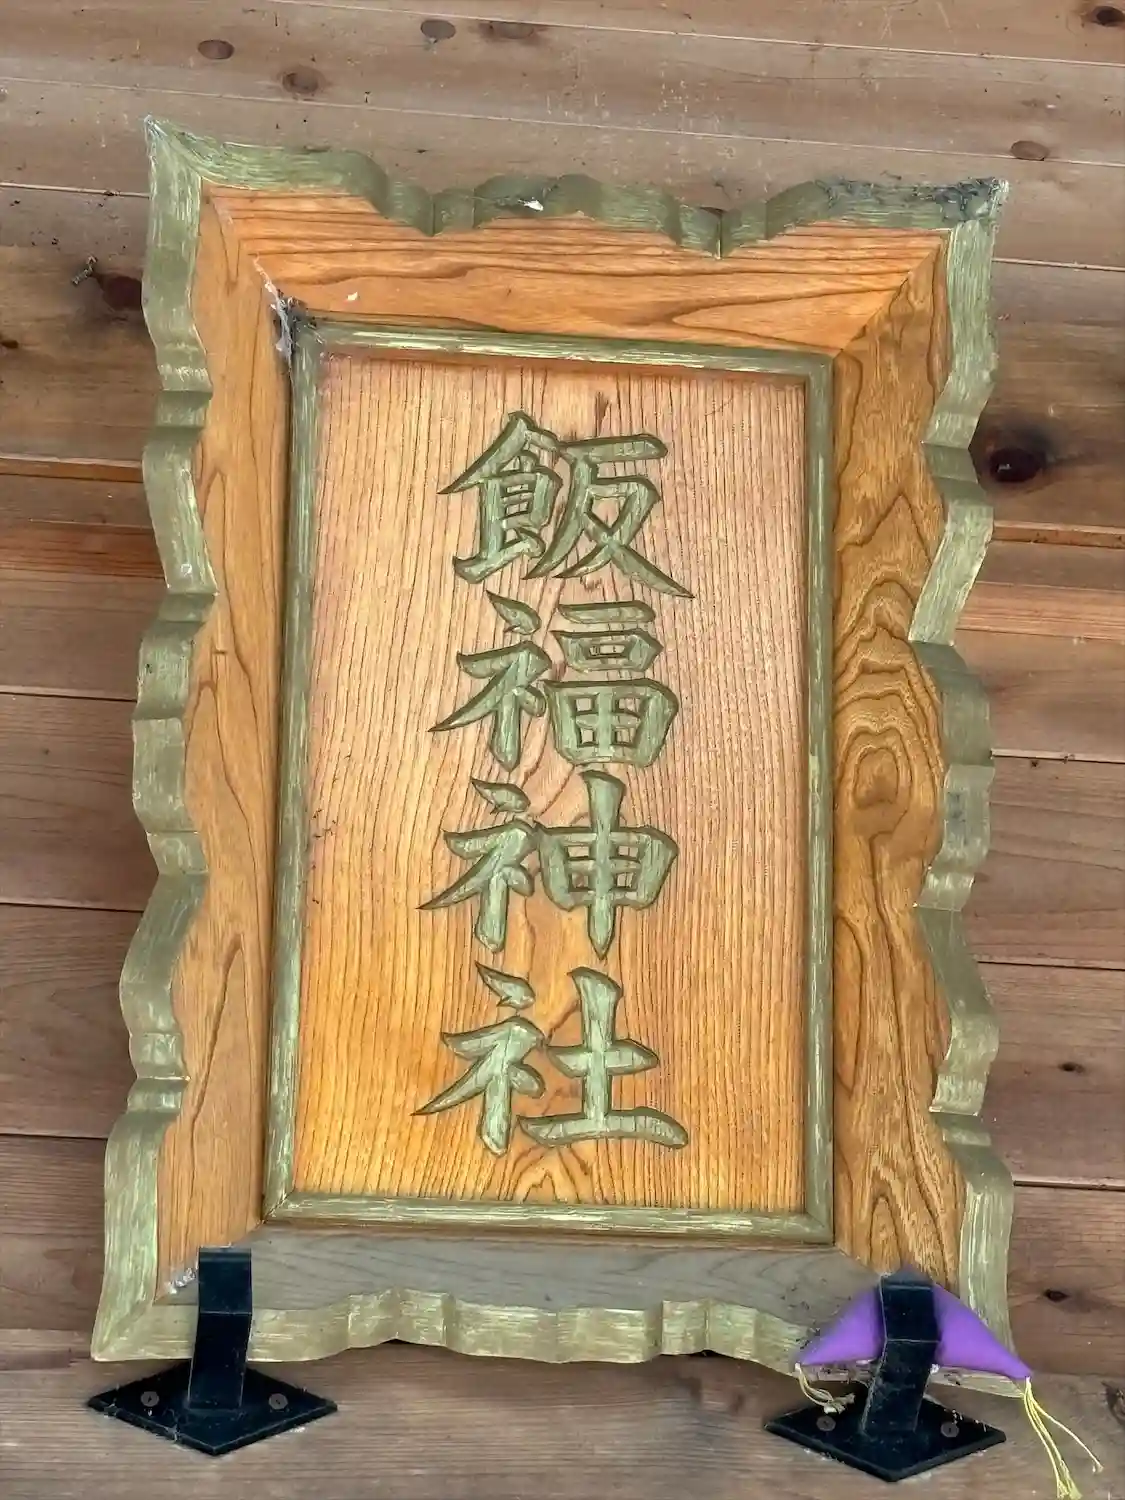 飯福神社